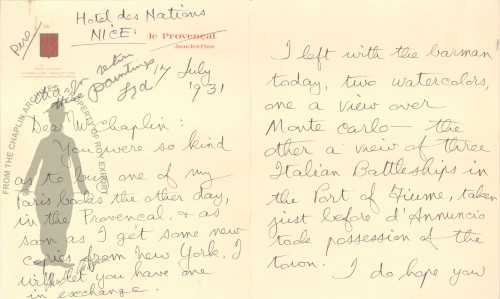 Pers
Hotel des Nations
NICE.
le Provençal
Juan-les-Pins
paintings
July
17
1931
Dear Mr Chaplin:
You were so kind
as to buy one of my
Paris books the other day,
in the Provencal, & as
soon as I get some new
copies from New York, I
will let you have one
in exchange.
FROM THE CHAPLIN ARCHIVES
PROPERTY OF ROY EXPORT
I left with the barman
today, two watercolors,
one a view over
Monte Carlo — the
other a view of three
Italian Battleships in
the Port of Fiume, taken
just before d'Annuncio
tode possession of the
town.
I do hope you